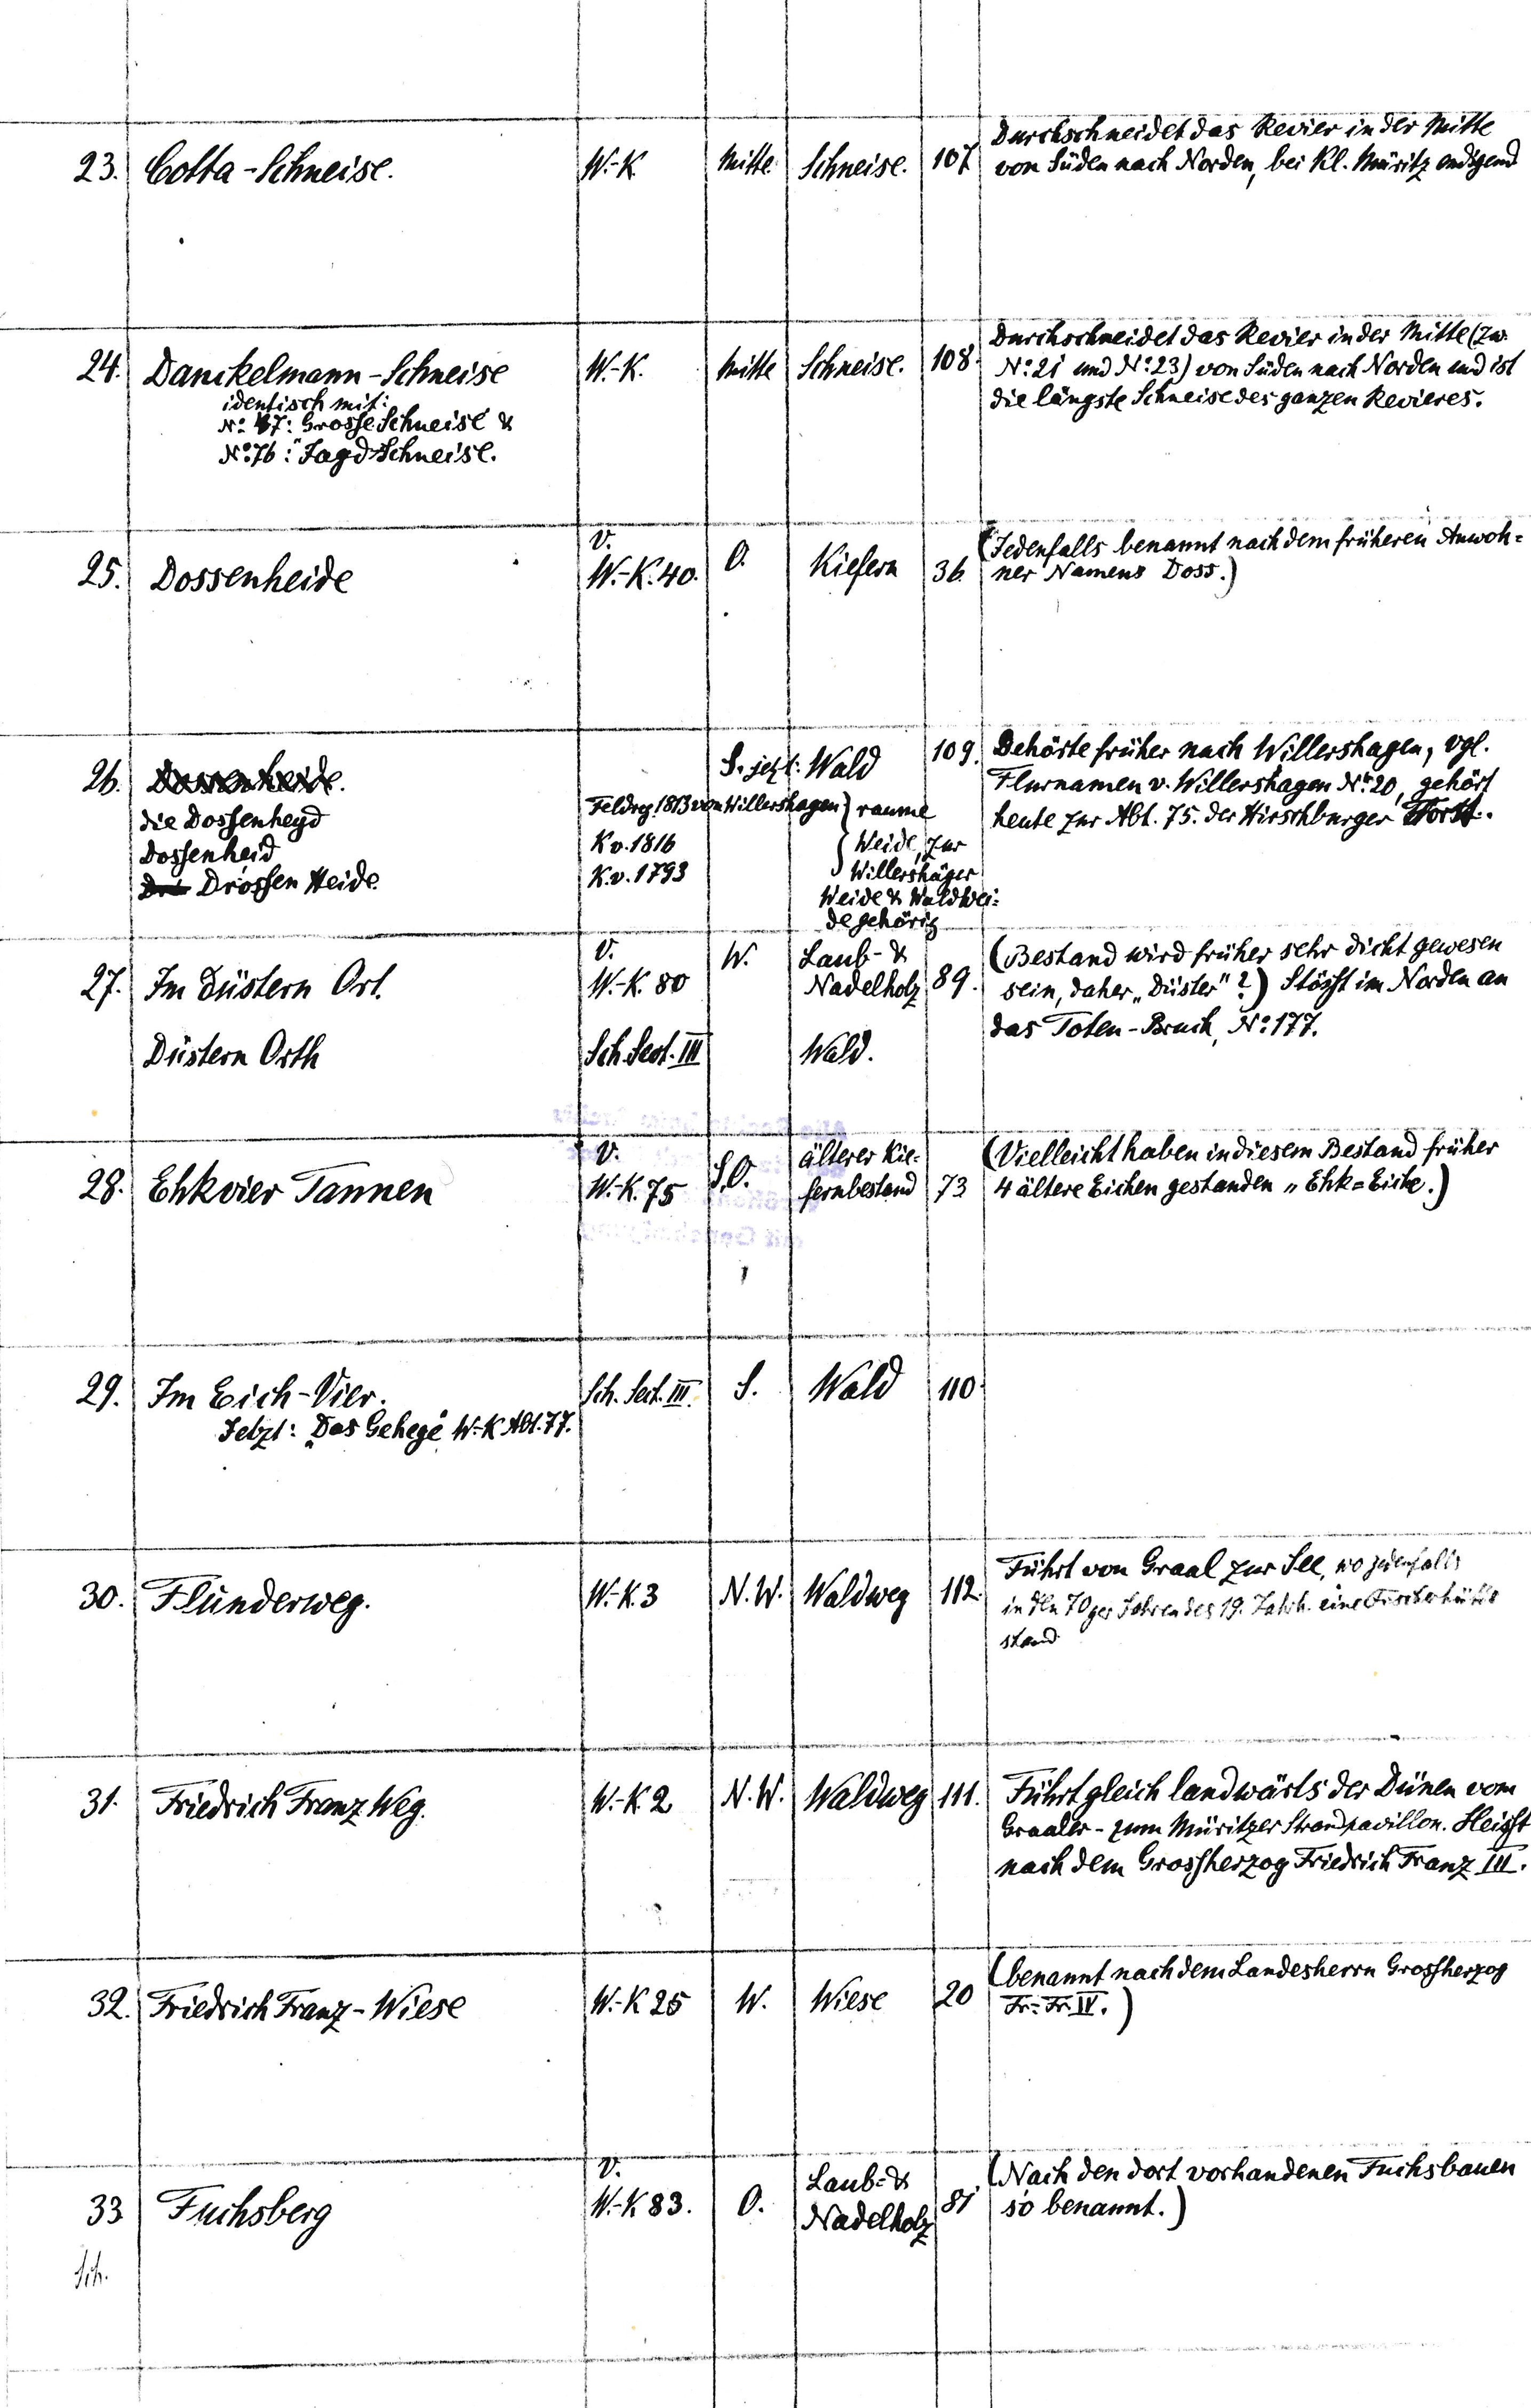 23. Cotta-Schneise. W.-K. Mitte. Schneise. 107. Durchschneidet das Revier in der Mitte
von Süden nach Norden, bei Kl. Müritz endigend
24. Danckelmann-Schneise W.-K. Mitte Schneise. 108. Durchschneidet das Revier in der Mitte (zw.
identisch mit: No: 21 und No: 23) von Süden nach Norden und ist
No: 67: Grosse Schneise & die längste Schneise des ganzen Revieres.
No: 76: "Jagd Schneise.
25. Dossenheide V. W.-K. 40. O. Kiefern 36. (Jedenfalls benannt nach dem früheren Anwoh=
ner Namens Doss.)
26. Dossenheide. S. jetzt: Wald 109. Gehörte früher nach Willershagen, vgl.
die Dossenheyd Feldreg. 1813 von Willershagen raume Flurnamen v. Willershagen No. 20, gehört
Dossenheid K v. 1816 Weide, zur heute zur Abt. 75. der Hirschburger Forst.
Drossen Heide K. v. 1793 Willershäger
Weide & Waldwei=
de gehörig
27. Im düstern Ort. V. W.-K. 80 W. Laub- & Nadelholz 89. (Bestand wird früher sehr dicht gewesen
sein, daher „Düster"?) Stösst im Norden an
das Toten-Bruch, No: 177.
Düstern Orth Sch. Sect. III Wald.
28. Ehkvier Tannen V. W.-K. 75 S.O. älterer Kie=
fernbestand 73 (Vielleicht haben in diesem Bestand früher
4 ältere Eichen gestanden „Ehk=Eiche.)
29. Im Eich-Vier. Sch. Sect. III. S. Wald 110.
Jetzt: „Das Gehege W.-K Abt. 77.
30. Flünderweg. W.-K. 3 N.W. Waldweg 112. Führt von Graal zur See, wo jedenfalls
in den 70ger Jahren des 19. Jahrh. eine Fischerhütte
stand
31. Friedrich Franz Weg. W.-K. 2 N.W. Waldweg 111. Führt gleich landwärts der Dünen vom
Graaler- zum Müritzer Strandpavillon. Heisst
nach dem Grossherzog Friedrich Franz III.
32. Friedrich Franz-Wiese W.-K 25 W. Wiese 20 (benannt nach dem Landesherrn Grossherzog
Fr.-Fr. IV.)
33 Fuchsberg V. W.-K 83. O. Laub- & Nadelholz 81 (Nach den dort vorhandenen Fuchsbauen
so benannt.)
Sch.